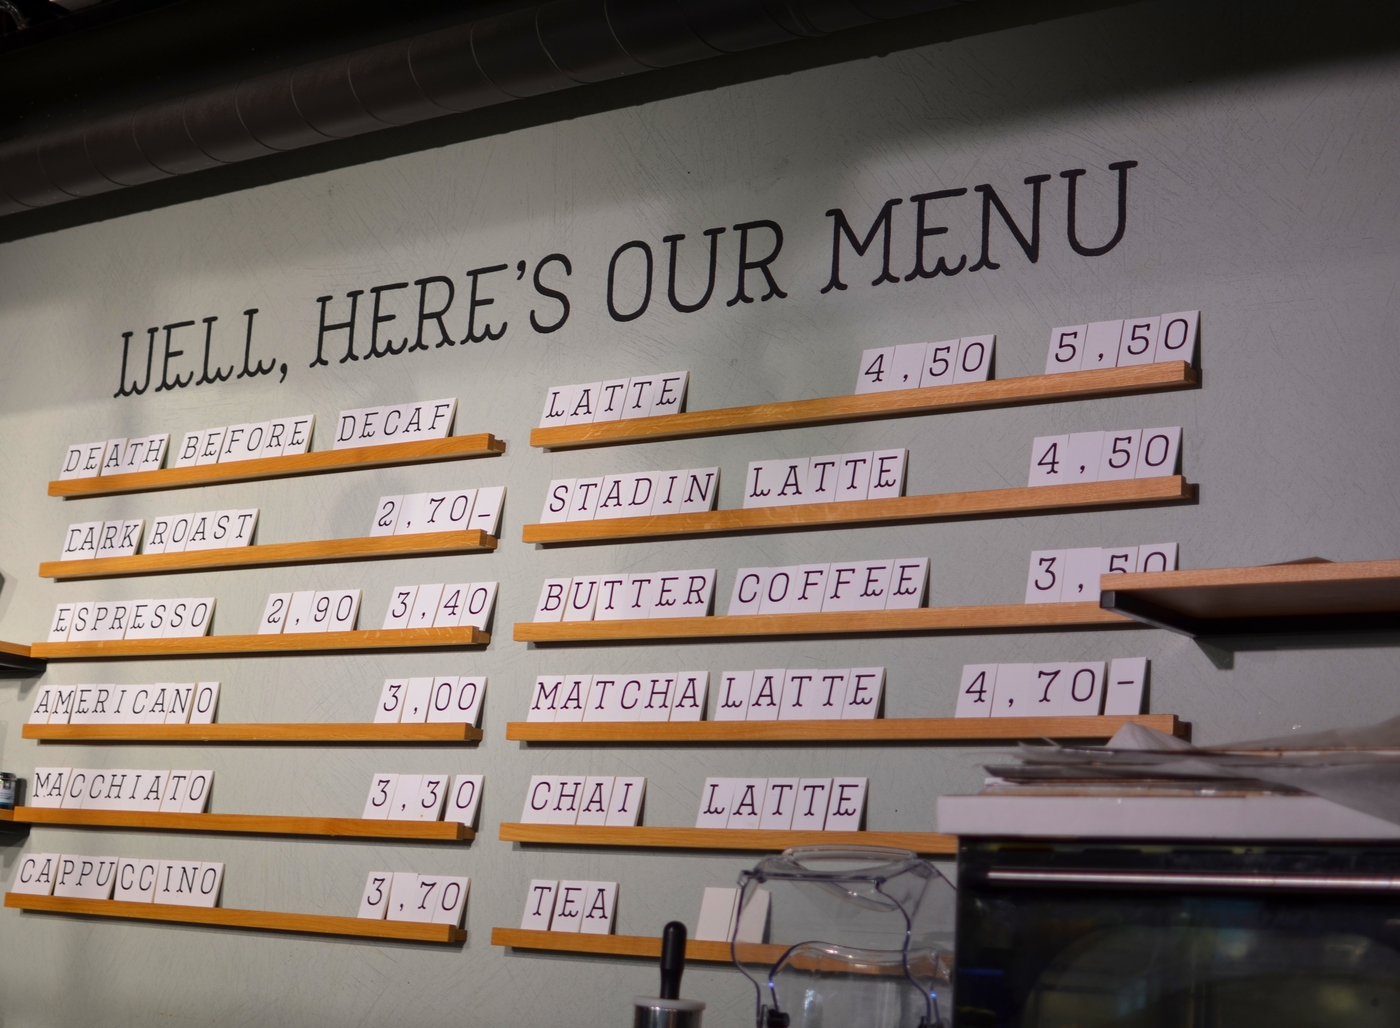 WELL, HERE'S OUR MENU
DEATH BEFORE DECAF
DARK ROAST 2,70-
ESPRESSO 2,90 3,40
AMERICANO 3,00
MACCHIATO 3,30
CAPPUCCINO 3,70
LATTE 4,50 5,50
STADIN LATTE 4,50
BUTTER COFFEE 3,50
MATCHA LATTE 4,70-
CHAI LATTE
TEA